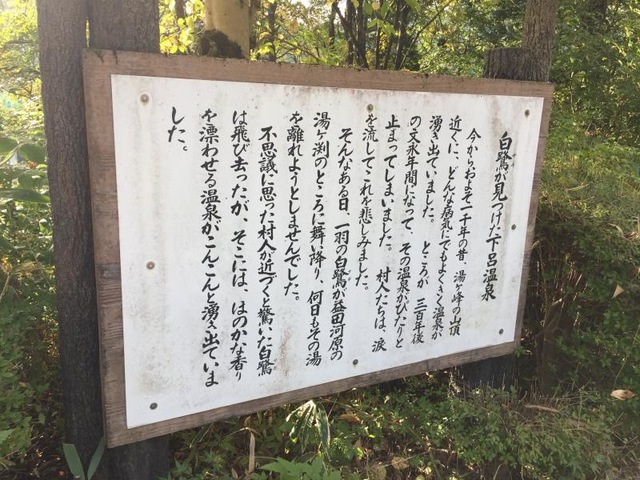 白鷺が見つけた下呂温泉
今からおよそ一千年の昔、湯ヶ峰の山頂
近くに、どんな病気にでもよくきく温泉が
湧き出ていました。ところが三百年後
の文永年間になって、その温泉がぴたりと
止まってしまいました。村人たちは、涙
を流してこれを悲しみました。
そんなある日、一羽の白鷺が益田河原の
湯ヶ渕のところに舞い降り、何日もその湯
を離れようとしませんでした。
不思議に思った村人が近づくと驚いた白鷺
は飛び去ったが、そこには、ほのかな香り
を漂わせる温泉がこんこんと湧き出ていま
した。